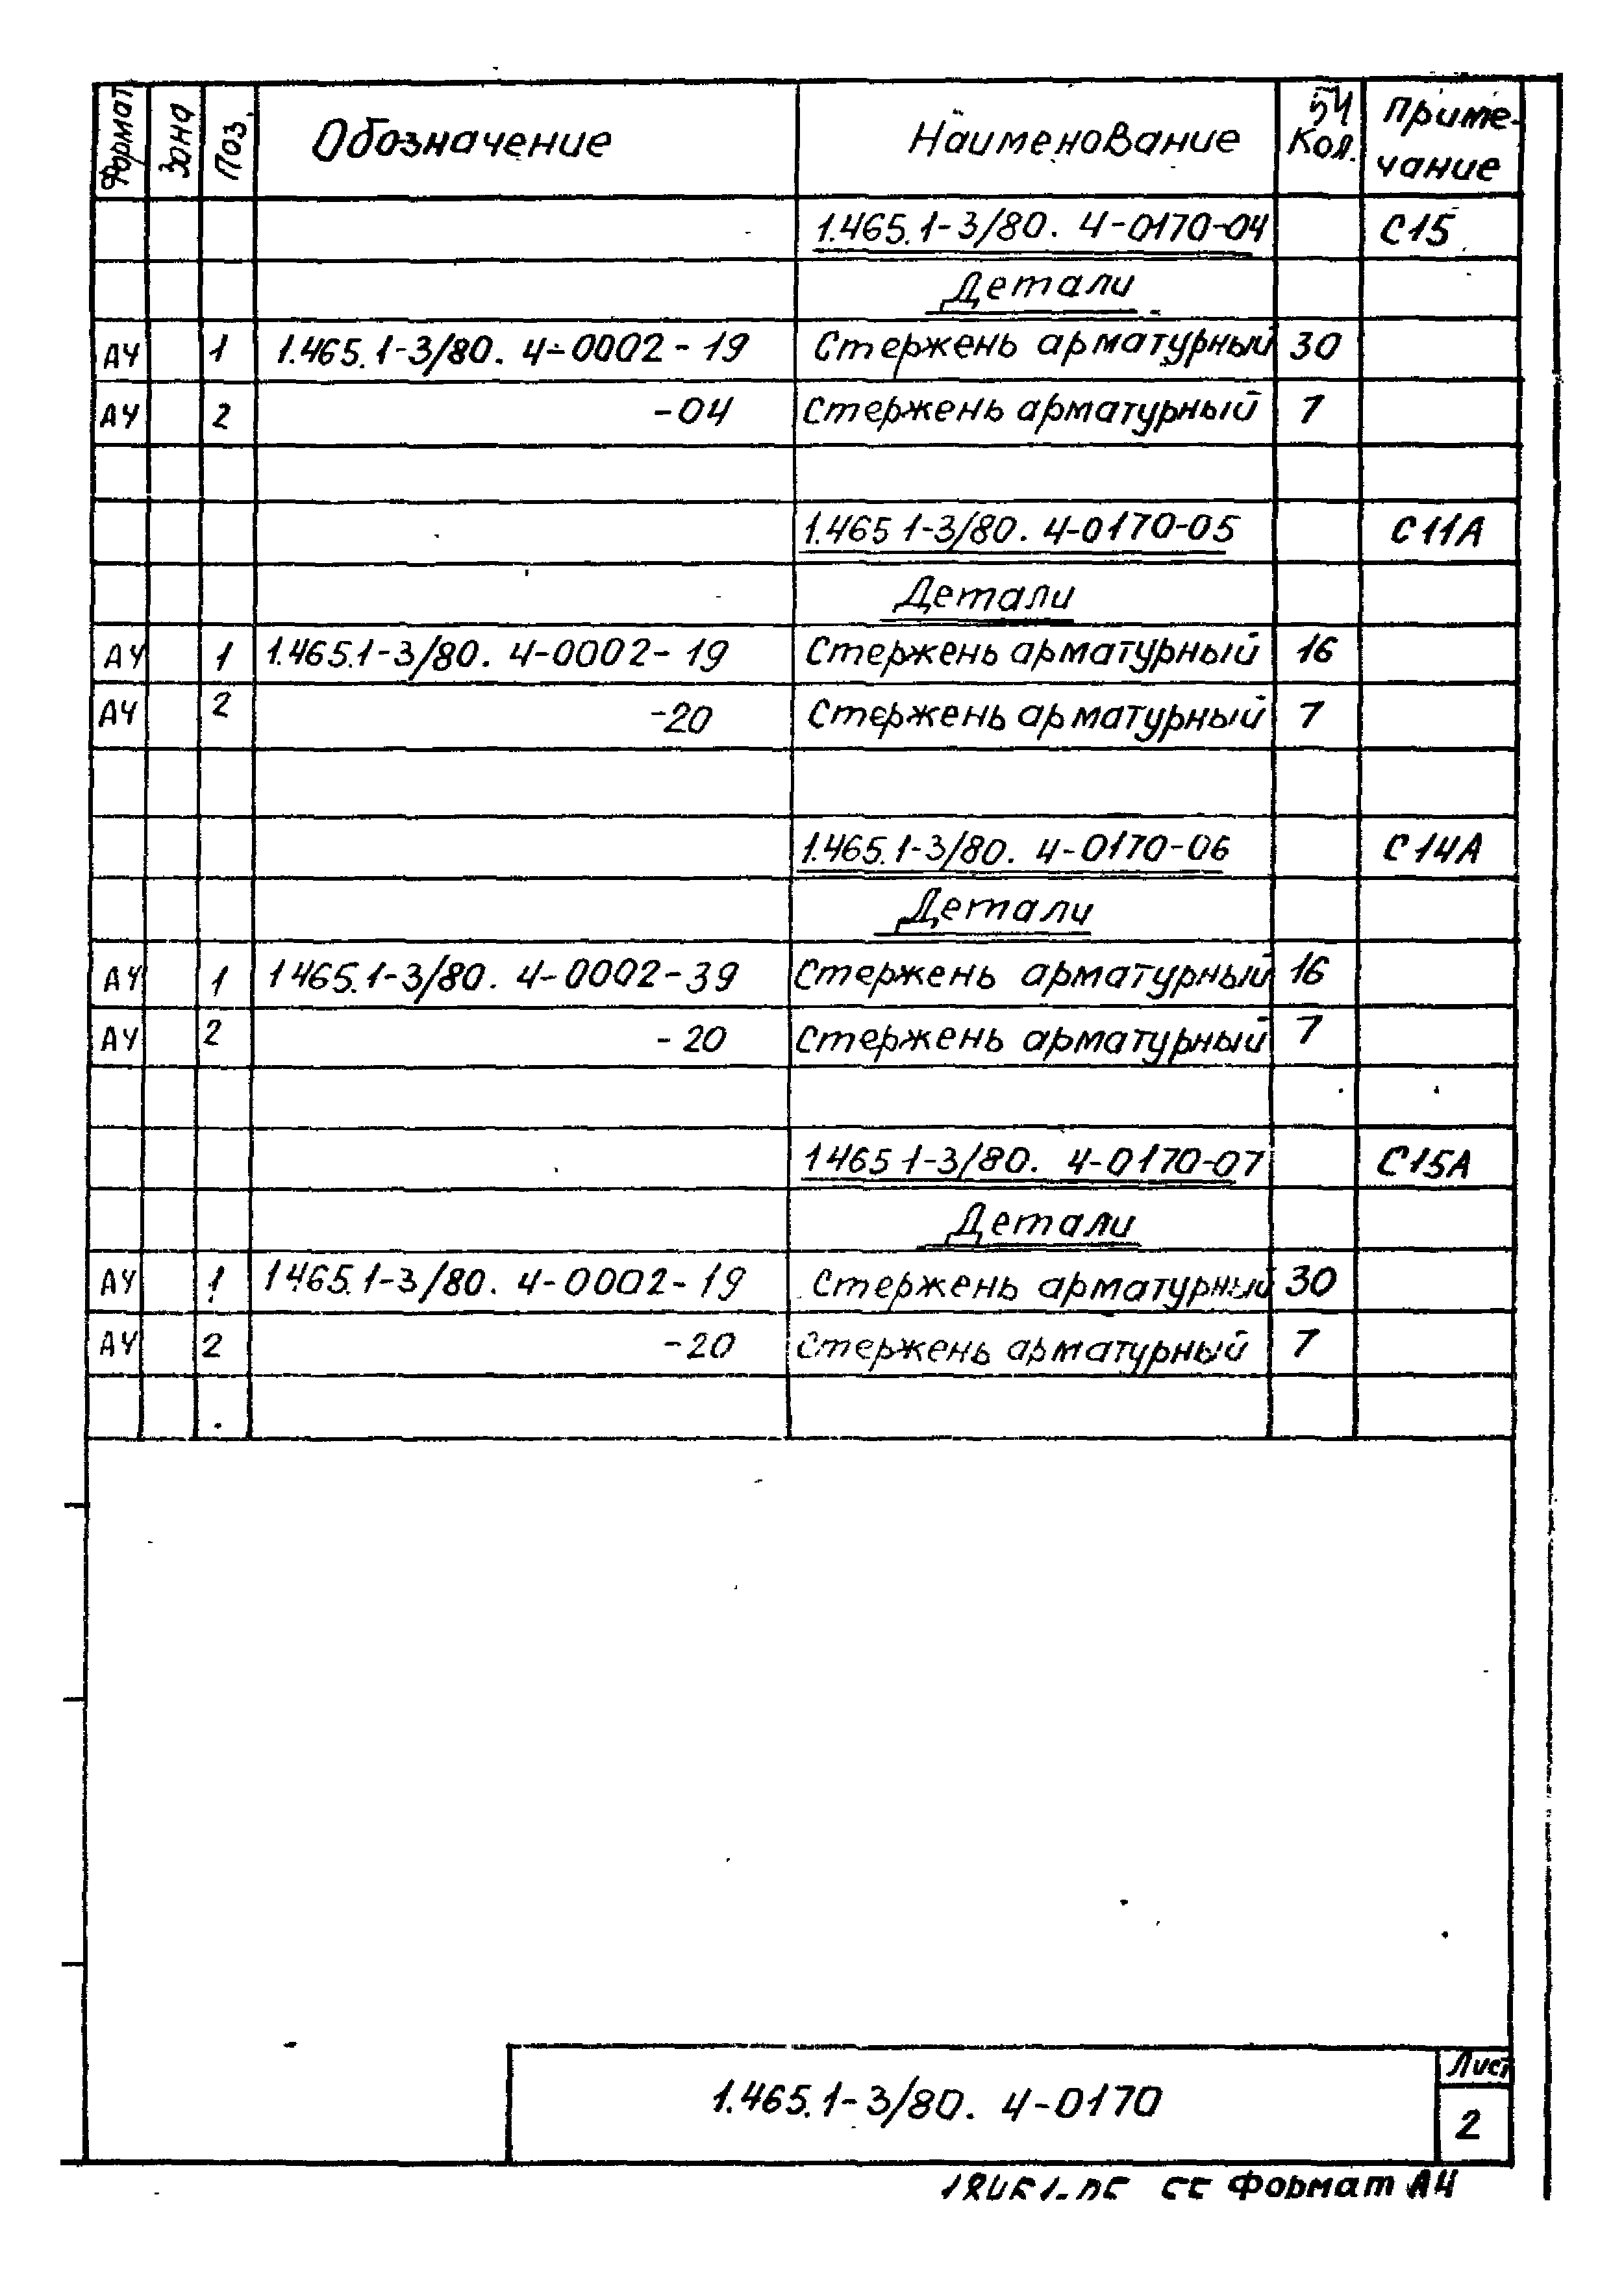 Формат Зона Поз. Обозначение Наименование Кол. Приме-
чание
54
1.465.1-3/80. 4-0170-04 С15
Детали
А4 1 1.465.1-3/80. 4-0002-19 Стержень арматурный 30
А4 2 -04 Стержень арматурный 7
1.465 1-3/80. 4-0170-05 С11А
Детали
А4 1 1.465.1-3/80. 4-0002-19 Стержень арматурный 16
А4 2 -20 Стержень арматурный 7
1.465.1-3/80. 4-0170-06 С14А
Детали
А4 1 1465.1-3/80. 4-0002-39 Стержень арматурный 16
А4 2 -20 Стержень арматурный 7
1465 1-3/80. 4-0170-07 С15А
Детали
А4 1 1465.1-3/80. 4-0002-19 Стержень арматурный 30
А4 2 -20 Стержень арматурный 7
1.465.1-3/80. 4-0170
Лист
2
Формат А4